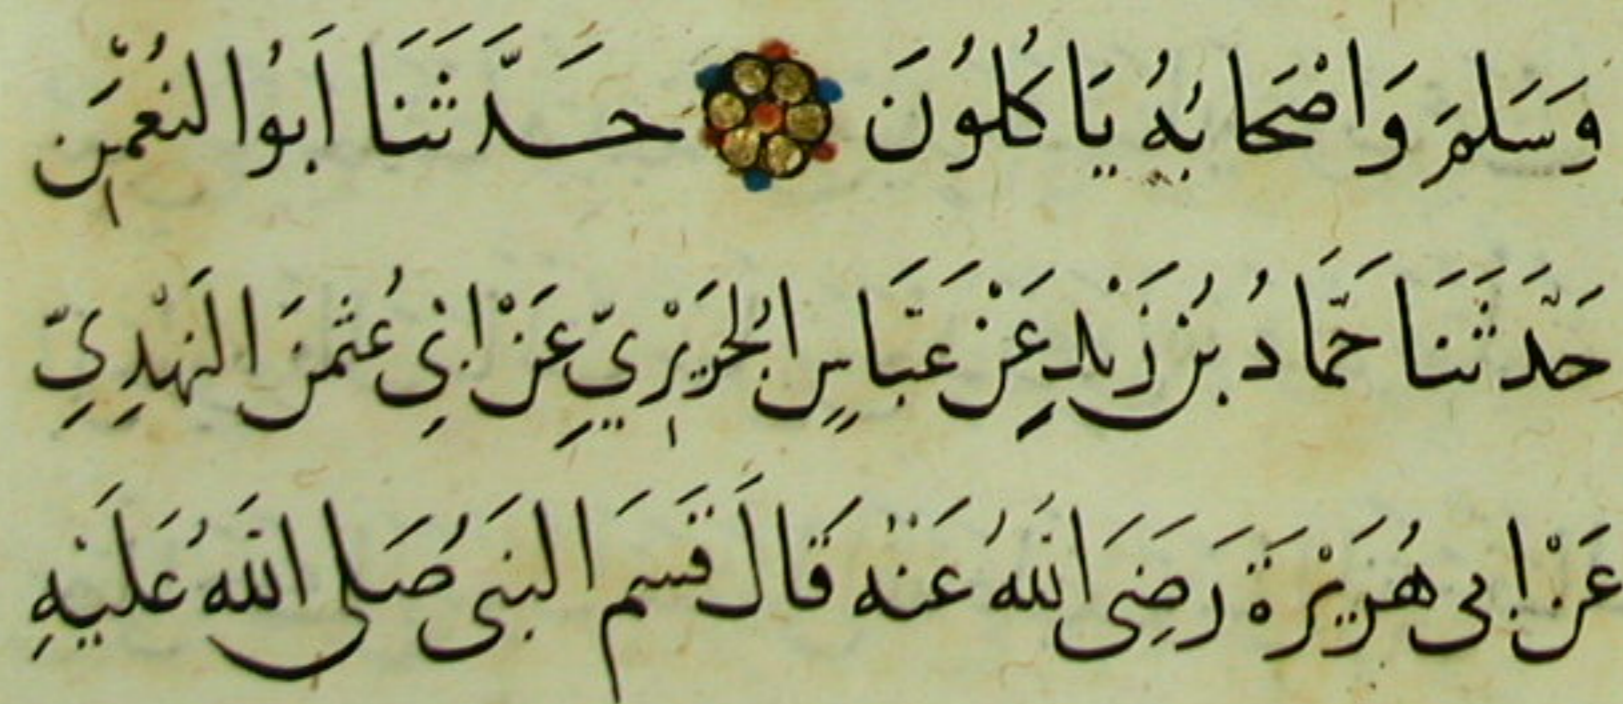 وَسَلمَ وَاصْحَابُهُ يَاكُلُونَ حَدَّثَنَا اَبُوا النُعْمٰنِ
حَدَّثَنَا حَمَّادُ بنُ زَيْدٍ عَنْ عَبَّاسٍ الجُرَيْرِيِّ عَنْ ابِي عُثمٰنَ النَهْدِيِّ
عَنْ ابى هُرَيْرَةَ رَضِىَ اللهُ عَنْهُ قَالَ قَسَمَ النَبىُ صَلى اللهُ عَلَيْهِ